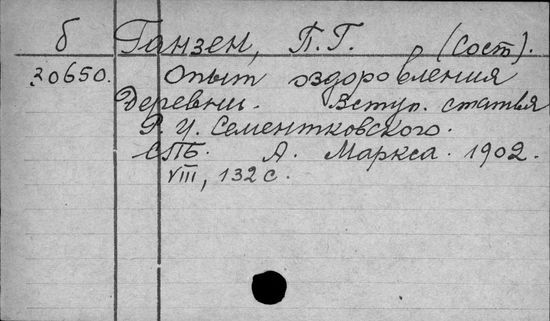 б Ганзен, П.Г. (Сост).
20650. Опыт оздоровления
деревни. Вступ. статья
Р. И. Сементковского.
СПБ. А. Маркса. 1902.
VIII, 132 с.